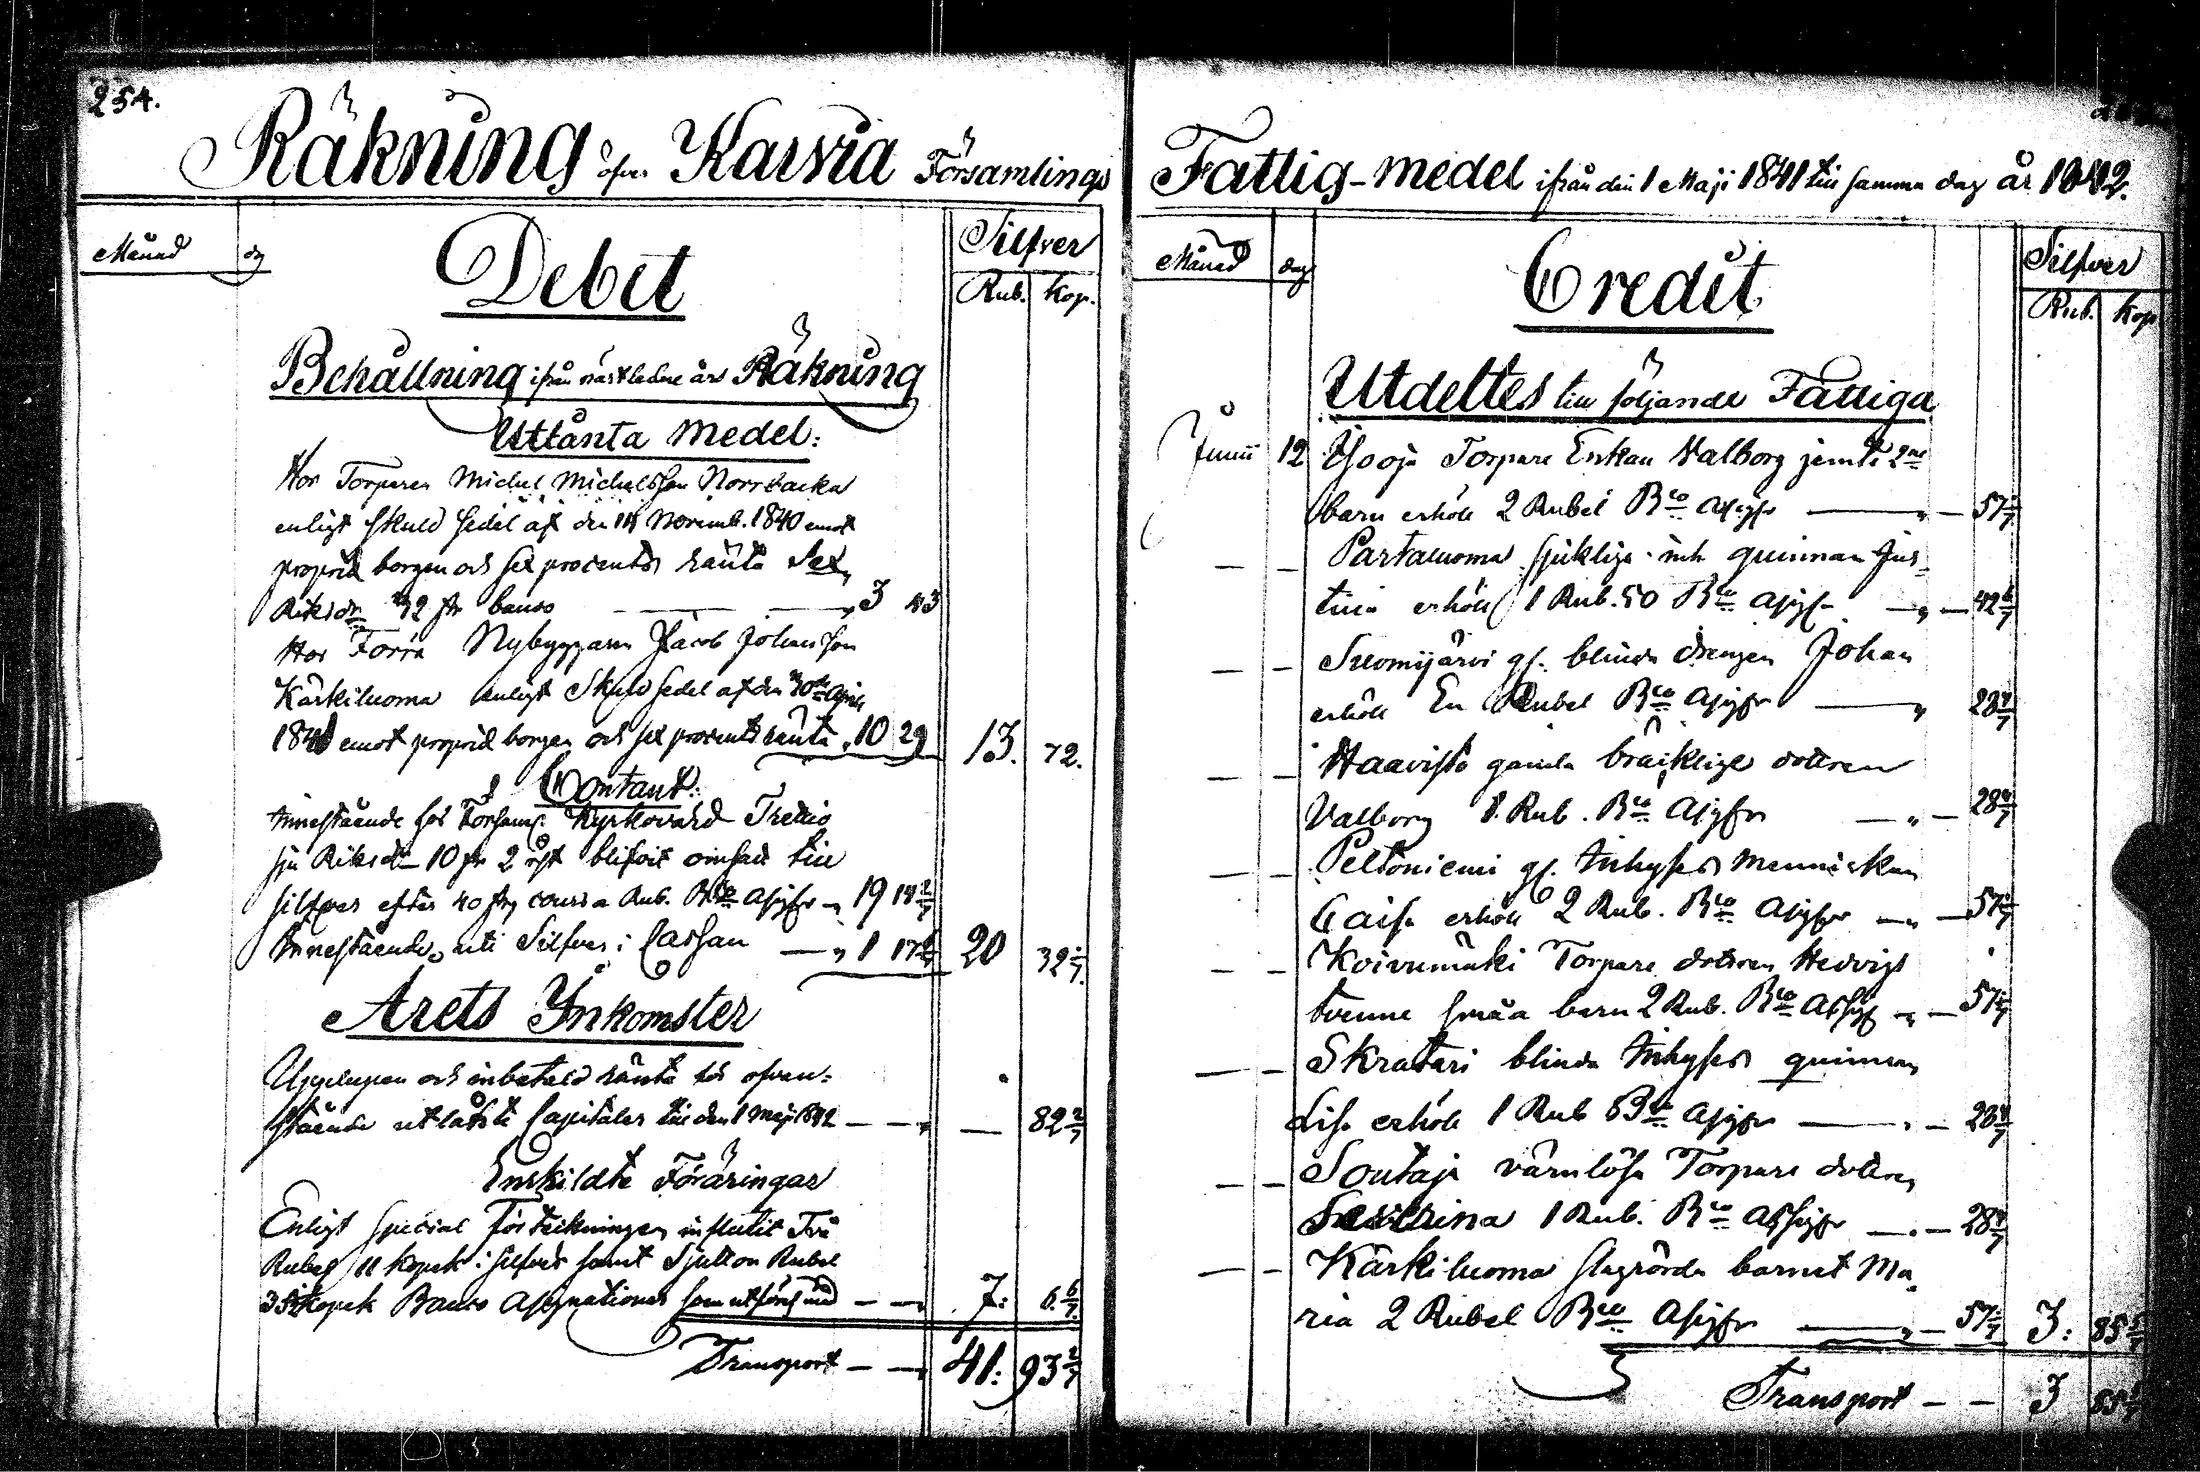 254.
Räkning öfver Karvia Församlings
Månad dg
Debet
Silfver
Rub. Kop.
Behållning ifrån nästledne års Räkning
Utlånta Medel:
Hos Torparen Michel Michelsson Norrbacka
enligt Skuld Sedel af den 14 Novemb. 1840 emot
proprié borgen och sex procents ränta Sex
Riksdr 32 st banco — — „ 3 43
Hos Förra Nybyggaren Jacob Johansson
Kärkiluoma enligt Skuld sedel af den 30de April
1841 emot proprié borgen och sex procents ränta „ 10 29 13. 72.
Contant:
Innestående hos Församl. Kyrkovärd Trettio
sju Riksdr 10 st 2 rst blifvit omsatt till
silfver efter 40 st courra Rub. Bco Assgr „ 19 14 2/7
Innestående uti Silfver i Cassan — „ 1 17 6/7 20 32 1/7
Årets Inkomster
Upplupen och inbetald ränta för ofvan=
stående utlånte Capitaler till den 1 Maji 1842 — — „ — 82 2/7
Enskildte Föräringar
Enligt special Förteckningen influtit Två
Rubel 11 kopek i silfver samt Sjutton Rubel
35 Kopek Banco Assignationer som utföres med — — „ 7: 6 6/7
Transport — — „ 41: 93 2/7
Fattig-Medel ifrån den 1 Maji 1841 till samma dag år 1842.
Månad dag
Credit
Silfver
Rub. Kop
Utdeltes till följande Fattiga
Junii 12 Ylooja Torpare Enkan Valborg jemte 2ne
barn erhöll 2 Rubel Bco Assgr — „ — 57 1/7
— — Partaluoma sjuklige inh. quinnan Jus=
tina erhöll 1 Rub. 50 Bco Assgr — „ — 42 6/7
— — Suomijärvi gl. blinda drengen Johan
erhöll En Rubel Bco Assgr — „ 28 4/7
— — Haavisto gamla bräcklige dottren
Valborg 1. Rub. Bco Assgr — „ — 28 4/7
— — Peltoniemi gl. Inhyses Menniskan
Caisa erhöll 2 Rub. Bco Assgr — „ — 57 1/7
— — Koivumäki Torpare dottren Hedvigs
tvenne små barn 2 Rub. Bco Assgr — „ — 57 1/7
— — Skratari blinda Inhyses quinnan
Lisa erhöll 1 Rub Bco Assgr — „ — 28 4/7
— — Soutaja värnlösa Torpare dottren
Severina 1 Rub. Bco Assgr — „ — 28 4/7
— — Kärkiluoma slagrörda barnet Ma=
ria 2 Rubel Bco Assgr — „ — 57 1/7 3: 85 5/7
Transport — — 3 85 5/7